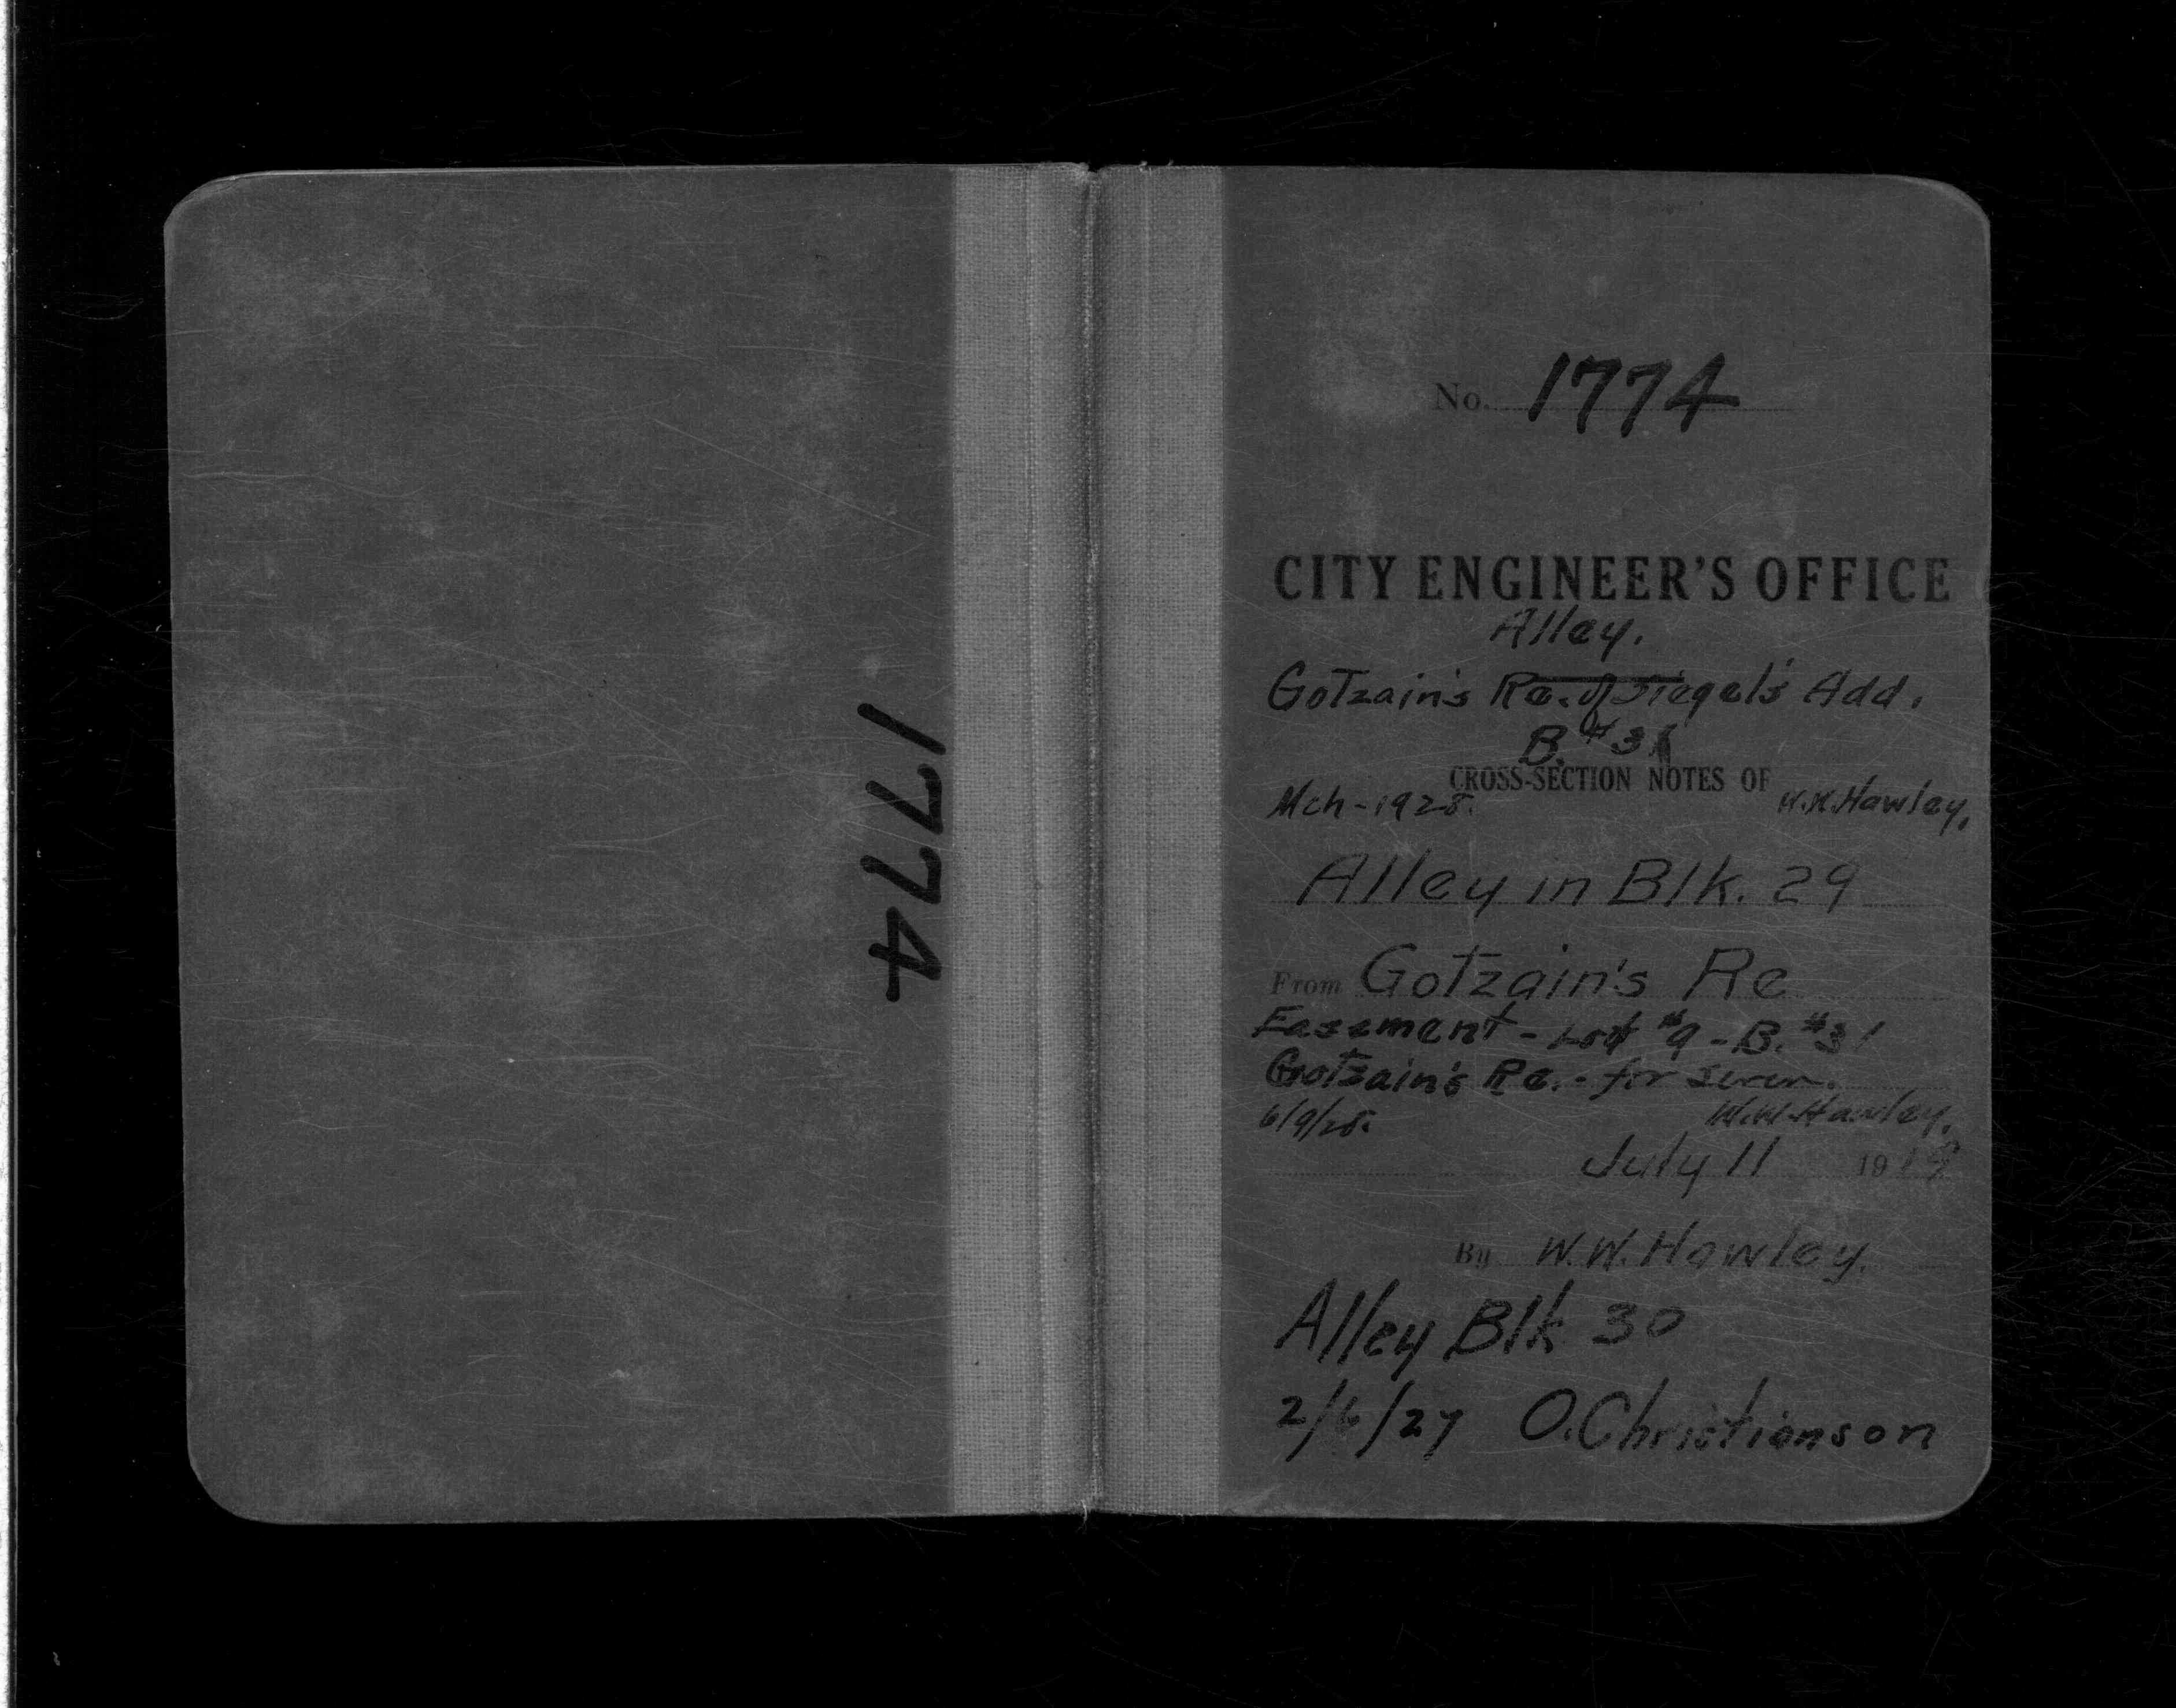 1774
No. 1774
CITY ENGINEER'S OFFICE
Alley.
Gotzain's Re. of Siegel's Add.
B. #31
CROSS-SECTION NOTES OF
Mch-1928. W.W.Hawley.
Alley in Blk. 29
From Gotzain's Re
Easement - Lot #9 - B. #31
Gotzain's Re. - for sewer.
6/9/28. W.W.Hawley.
July 11 1919
By W.W.Hawley.
Alley Blk 30
2/6/27 O.Christianson